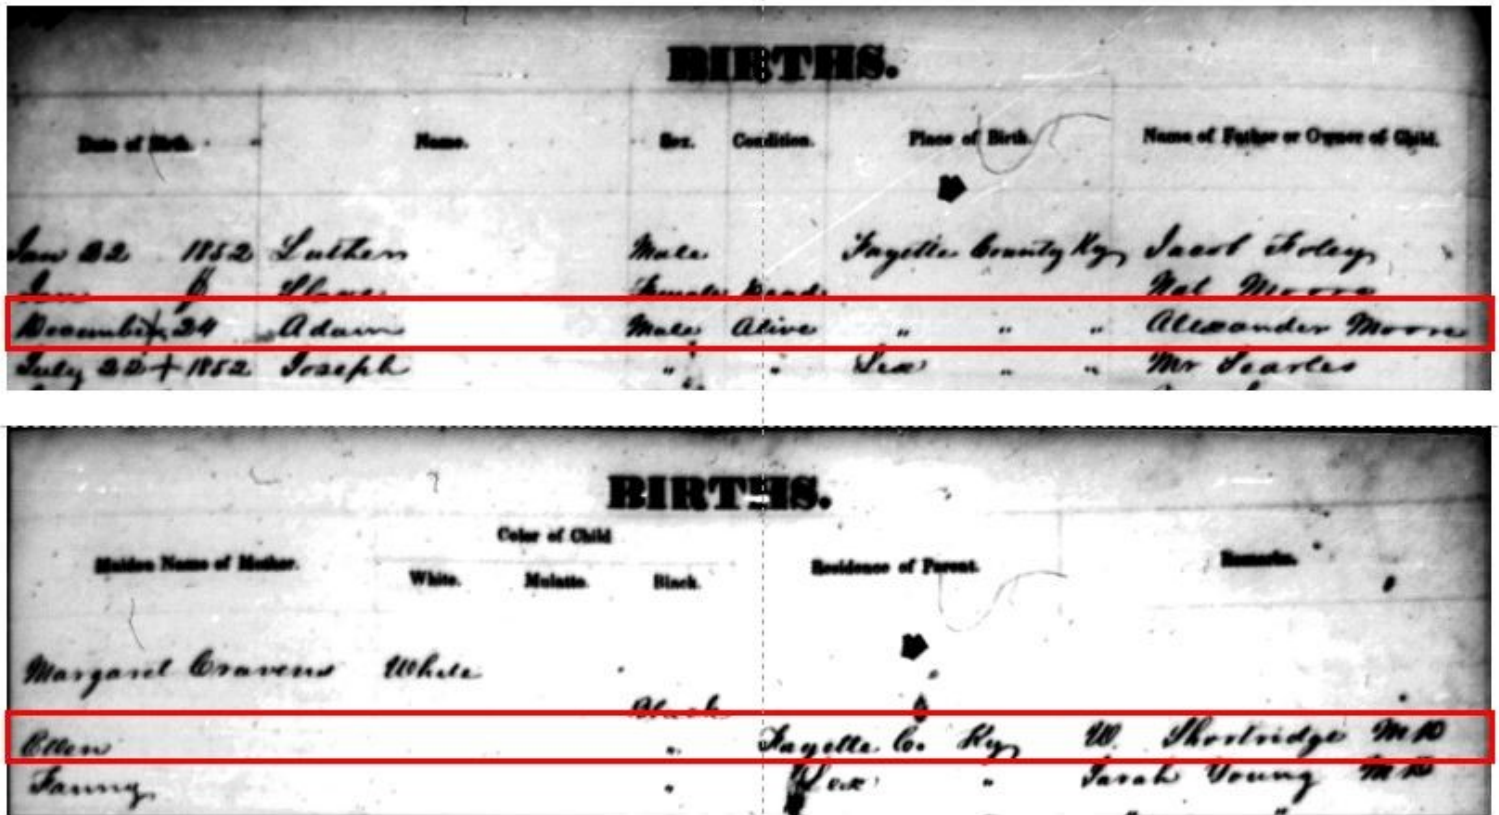 BIRTHS.
Date of Birth. Name. Sex. Condition. Place of Birth. Name of Father or Owner of Child.
Jan 22 1852 Luther Male Fayette County Ky Jacob Foley
Jan Slave Female Dead Nat Moore
December 24 Adam Male Alive " " " Alexander Moore
July 22 1852 Joseph " " Lex " " Mr Searles
BIRTHS.
Color of Child
Maiden Name of Mother. White. Mulatto. Black. Residence of Parent. Remarks.
Margaret Cravens White
Black
Ellen " Fayette Co. Ky W. Shortridge MD
Fanny " Lex " Sarah Young MD
" "